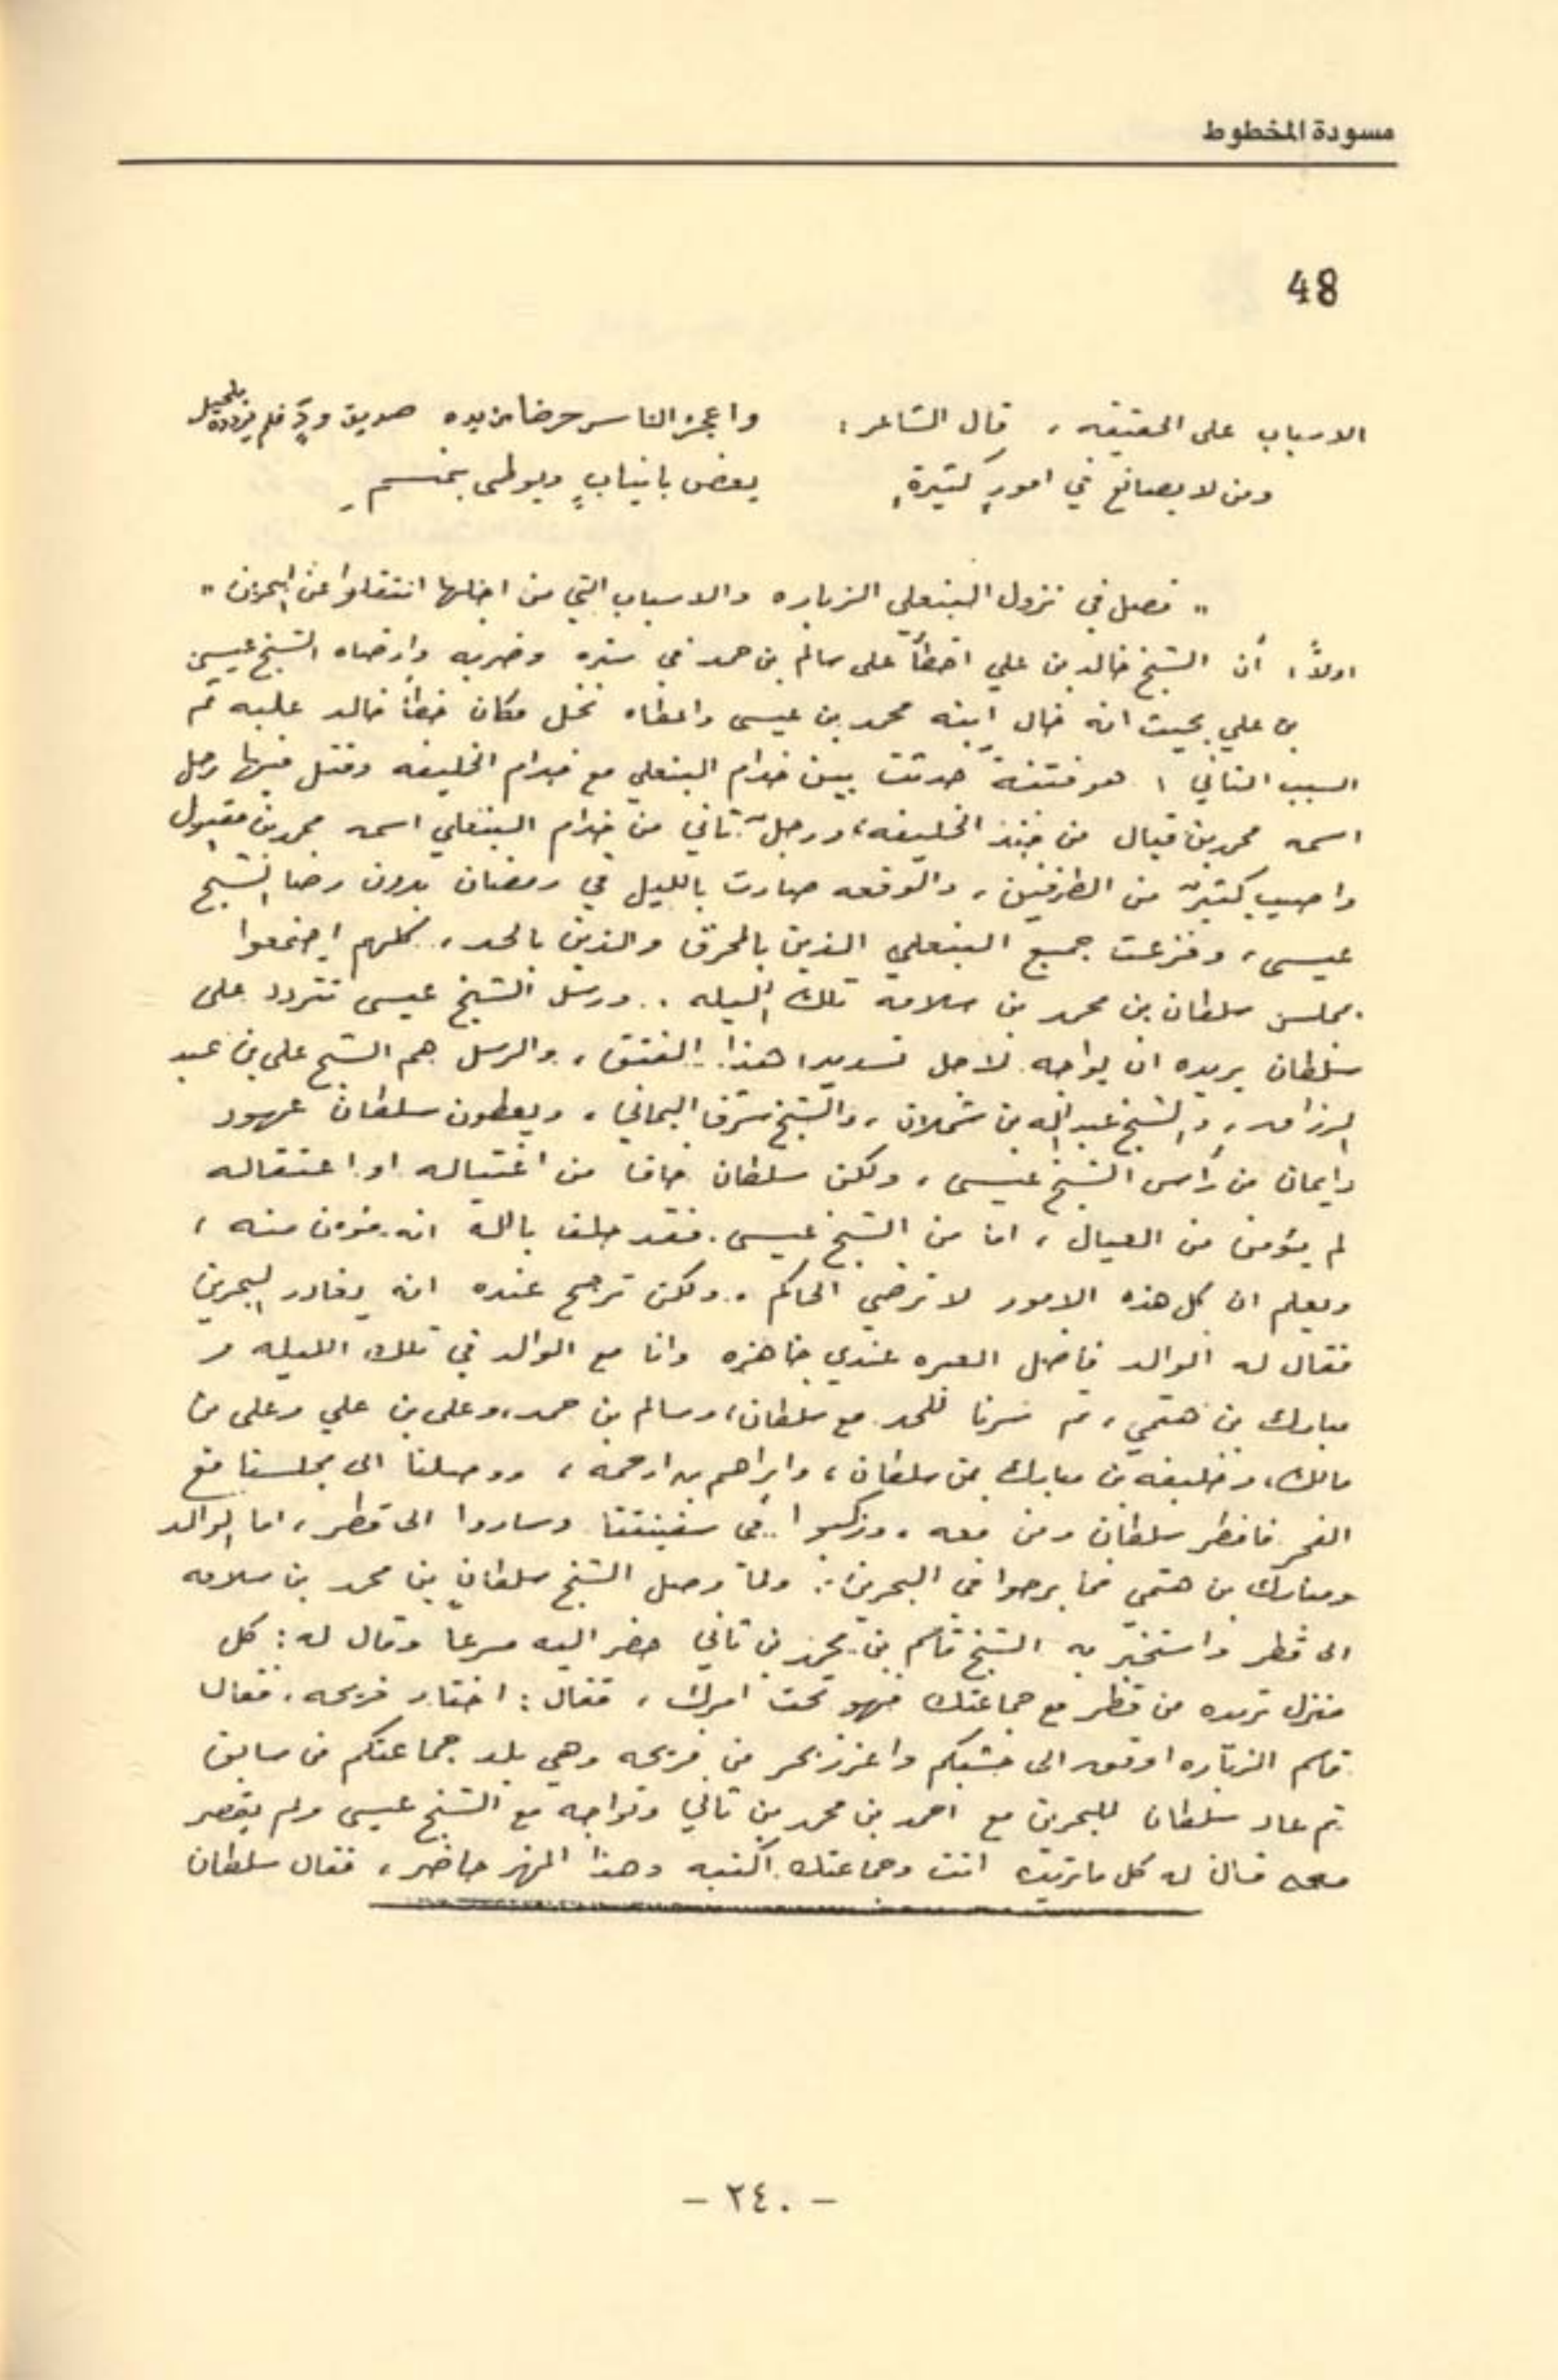 مسودة المخطوط
48
الاسباب على الحقيقه ، قال الشاعر : واعجز الناس حر ضاع من يده صديق ودٍّ فلم يردده بالحيل
ومن لا يصانع في امورٍ كثيرةٍ يعضى بانيابٍ ويوطى بمنسمِ
" فصل في نزول البنعلي الزباره والاسباب التي من اجلها انتقلوا عن البحرين "
اولاً ، أن الشيخ خالد بن علي اخطأ على سالم بن حمد في ستره وضربه وارضاه الشيخ عيسى
بن علي بحيث انه خال ابنه محمد بن عيسى واعطاه نخل مكان خطأ خالد عليه ثم
السبب الثاني ، هو فتنةٌ حدثت بين خدام البنعلي مع خدام الخليفه وقتل فيها رجل
اسمه محمد بن قبال من الخليفه ، ورجلٌ ثاني من خدام البنعلي اسمه محمد بن مقبول
واصيب كثيرٌ من الطرفين ، والوقعه صارت بالليل في رمضان بدون رضا الشيخ
عيسى ، وفزعت جميع البنعلي الذين بالمحرق والذين بالحد ، كلهم اجتمعوا
بمجلس سلطان بن محمد بن سلامة تلك الليله . ورسل الشيخ عيسى تتردد على
سلطان يريده ان يواجه لاجل هذا الفتق ، والرسل هم الشيخ علي بن عبد
الرزاق ، والشيخ عبدالله بن شملان ، والشيخ شرف اليماني ، ويعطون سلطان عهود
وايمان من رأس الشيخ عيسى ، ولكن سلطان خاف من اغتياله او اعتقاله
لم يؤمن من العيال ، اما من الشيخ عيسى فقد حلف بالله انه مؤمن منه ،
ويعلم ان كل هذه الامور لا ترضي الحاكم . ولكن ترجح عنده انه يغادر البحرين
فقال له الوالد فاضل العبره عندي جاهزه وانا مع الوالد في تلك الليله و
مبارك بن هتمي ، ثم سرنا للحد مع سلطان ، وسالم بن حمد ، وعلي بن علي وعلي بن
مالك ، وخليفه بن مبارك بن سلطان ، وابراهيم بن ارحمه ، ووصلنا الى مجلسنا مع
الفجر فافطر سلطان ومن معه ، وركبوا في سفينتنا وساروا الى قطر ، اما الوالد
ومبارك بن هتمي فما برحوا في البحرين . ولمّا وصل الشيخ سلطان بن محمد بن سلامه
الى قطر واستخبر به الشيخ قاسم بن محمد بن ثاني حضر اليه مسرعا وقال له : كل
منزل تريده من قطر مع جماعتك فهو تحت امرك ، فقال : اختار فريحه ، فقال
قاسم الزباره اوفق الى خشبكم واعزز بحر من فريحه وهي بلد جماعتكم من سابق
ثم عاد سلطان للبحرين مع احمد بن محمد بن ثاني وتواجه مع الشيخ عيسى ولم يقصر
معه قال له كل ما تريده انت وجماعتك اكتبه وهذا المهر حاضر ، فقال سلطان
- ٢٤٠ -